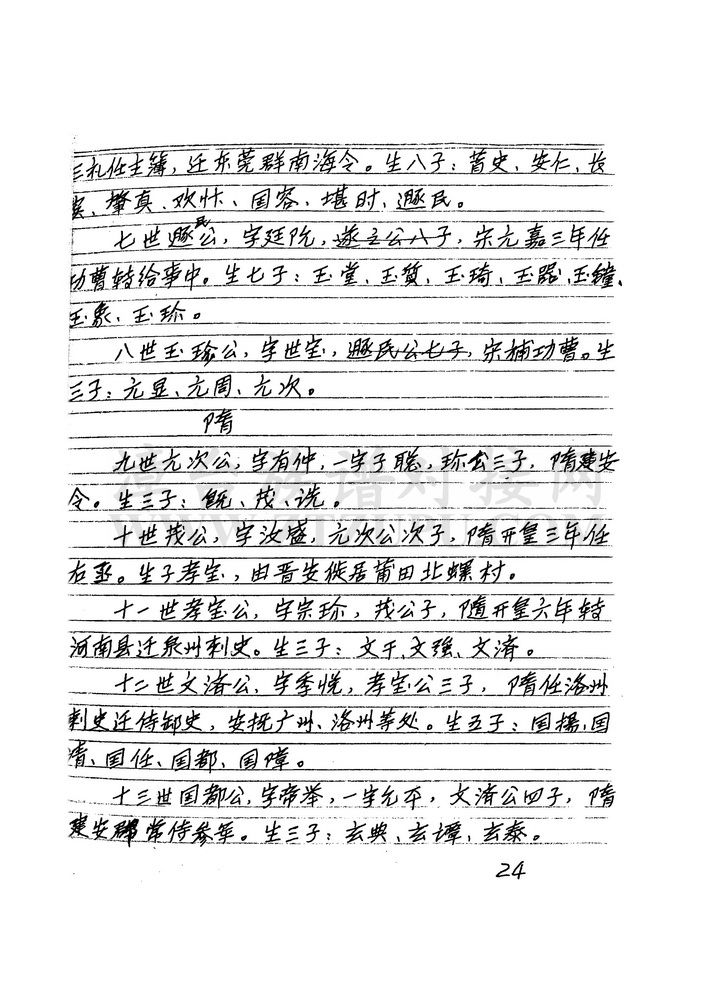 三礼任主簿，迁东莞群南海令。生八子：苗史、安仁、长
宾、肇真、欢忭、国容、堪时、遯民。
七世遯民公，字廷阮，遂之公八子，宋元嘉三年任
功曹转给事中。生七子：玉堂、玉质、玉琦、玉器、玉钟、
玉象、玉珍。
八世玉珍公，字世宝，遯民公七子，宋补功曹。生
三子：元显、元周、元次。
隋
九世元次公，字有仲，一字子聪，珍公三子，隋建安
令。生三子：、茂、选。
十世茂公，字汝盛，元次公次子，隋开皇三年任
右丞。生子孝宝，由晋安徙居莆田北螺村。
十一世孝宝公，字宗珍，茂公子，隋开皇六年转
河南县迁泉州刺史。生三子：文干、文强、文济。
十二世文济公，字季悦，孝宝公三子，隋任洛州
刺史迁侍御史，安抚广州、洛州等处。生五子：国扬、国
清、国任、国都、国障。
十三世国都公，字帝举，一字允平，文济公四子，隋
建安郡常侍参军。生三子：玄典、玄谭、玄泰。
24